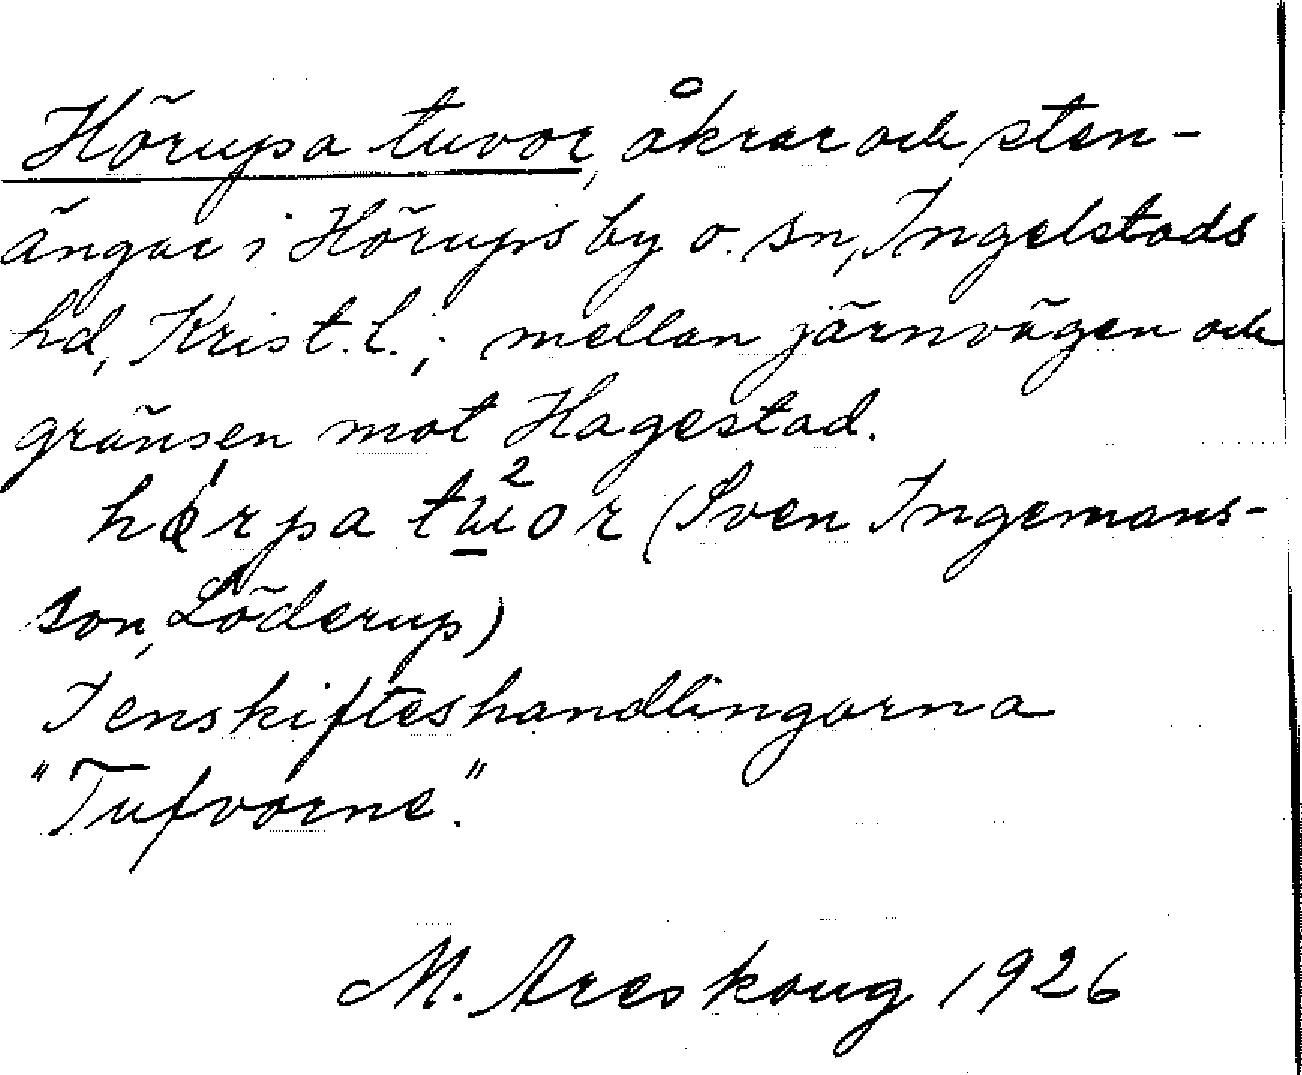 Hörupa tuvor, åkrar och sten-
ängar i Hörups by o. sn, Ingelstads
hd, Krist. l.; mellan järnvägen och
gränsen mot Hagestad.
tu̲²or (Sven Ingemans-
son, Löderup)
I enskifteshandlingarna
"Tufvorne."
M. Areskoug 1926